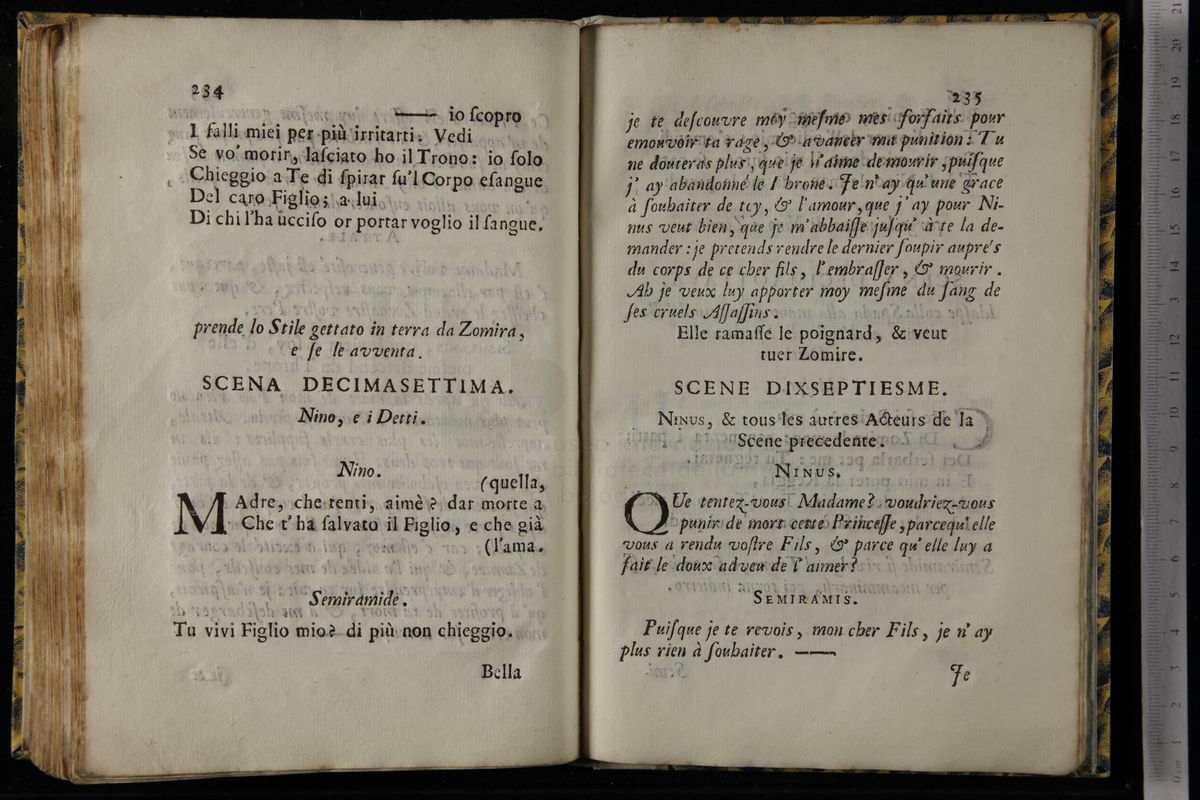 234
—— io ſcopro
I falli miei per più irritarti. Vedi
Se vo' morir, laſciato ho il Trono: io ſolo
Chieggio a Te di ſpirar ſu'l Corpo eſangue
Del caro Figlio; a lui
Di chi l'ha ucciſo or portar voglio il ſangue.
prende lo Stile gettato in terra da Zomira,
e ſe le avventa.
SCENA DECIMASETTIMA.
Nino, e i Detti.
Nino.
(quella,
MAdre, che tenti, aimè? dar morte a
Che t' ha ſalvato il Figlio, e che già
(l'ama.
Semiramide.
Tu vivi Figlio mio? di più non chieggio.
Bella
235
je te deſcouvre moy meſme mes forfaits pour
emouvoir ta rage, & avancer ma punition: Tu
ne douteras plus, que je n'aime de mourir, puiſque
j' ay abandonné le Throne. Je n'ay qu'une grace
à ſouhaiter de toy, & l'amour, que j'ay pour Ni-
nus veut bien, que je m'abbaiſſe juſqu' à te la de-
mander: je pretends rendre le dernier ſoupir aupre's
du corps de ce cher fils, l'embraſſer, & mourir.
Ah je veux luy apporter moy meſme du ſang de
ſes cruels Aſſaſſins.
Elle ramaſſe le poignard, & veut
tuer Zomire.
SCENE DIXSEPTIESME.
NINUS, & tous les autres Acteurs de la
Scene precedente.
NINUS.
QUe tentez-vous Madame? voudriez-vous
punir de mort cette Princeſſe, parcequ' elle
vous a rendu voſtre Fils, & parce qu' elle luy a
fait le doux adveu de l'aimer?
SEMIRAMIS.
Puiſque je te revois, mon cher Fils, je n' ay
plus rien à ſouhaiter. ——
Je